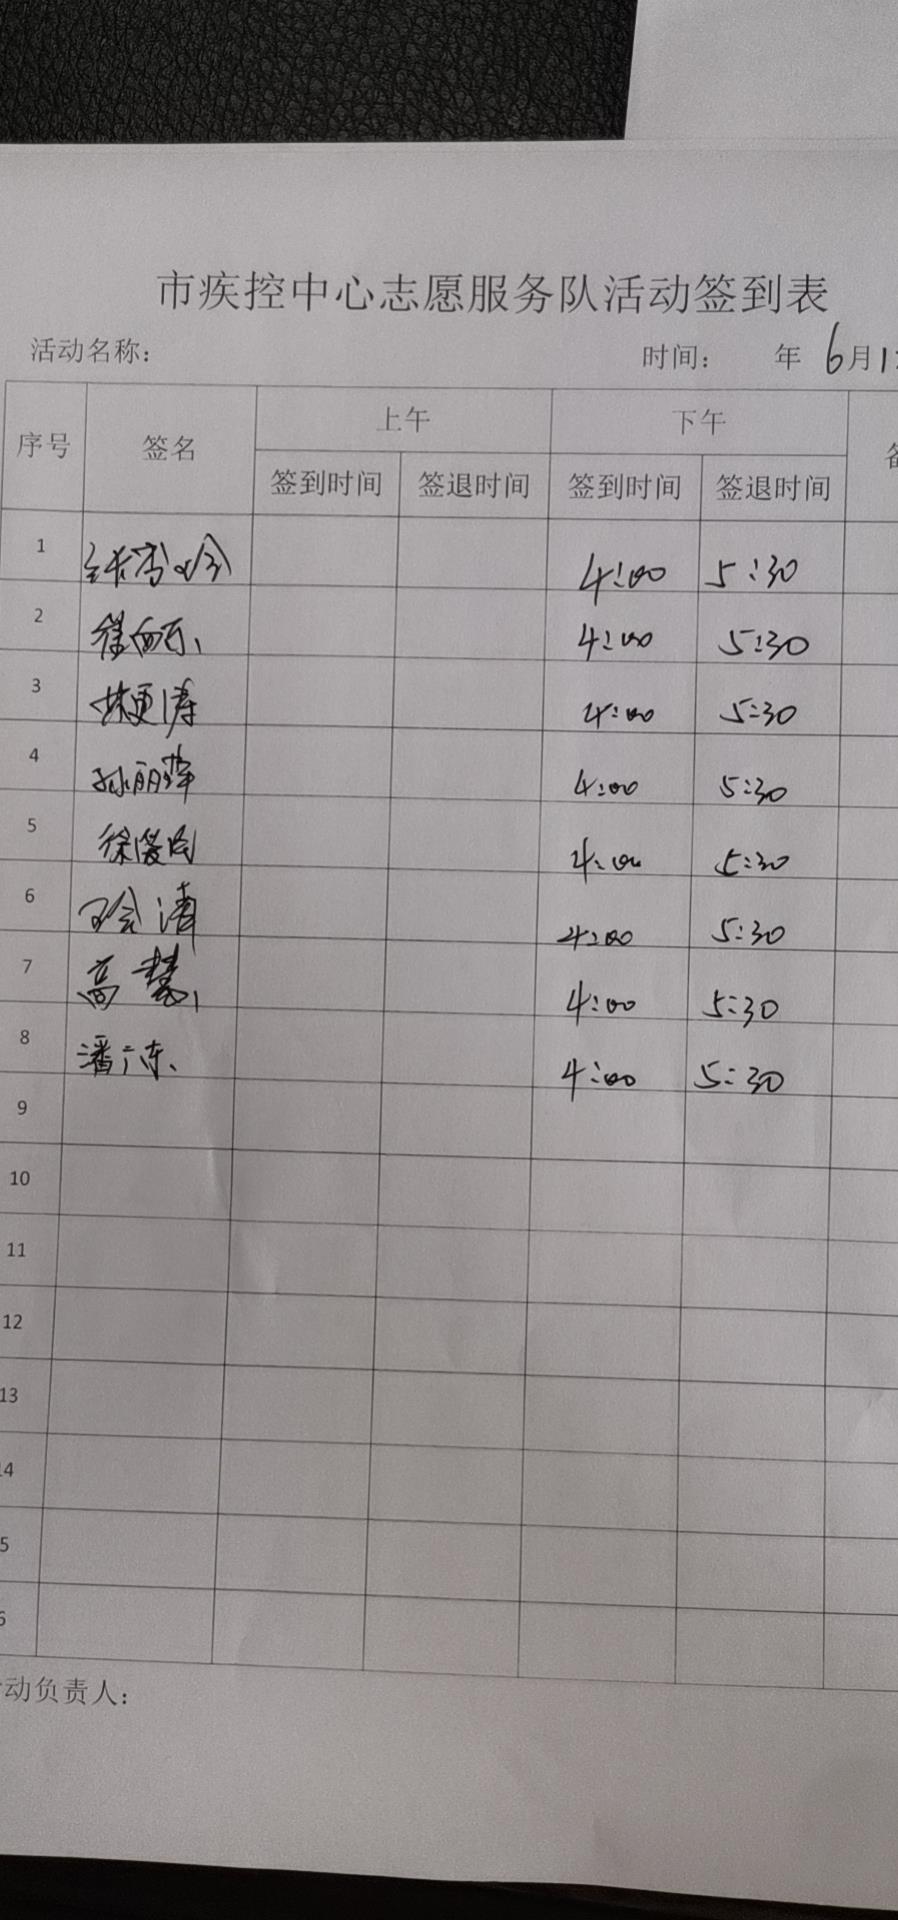 市疾控中心志愿服务队活动签到表
活动名称： 时间： 年 6月1
序号 签名 上午 下午
签到时间 签退时间 签到时间 签退时间
1 4:00 5:30
2 4:00 5:30
3 林更涛 4:00 5:30
4 孙丽萍 4:00 5:30
5 4:00 5:30
6 4:00 5:30
7 高慧 4:00 5:30
8 潘广东 4:00 5:30
9
10
11
12
13
14
5
6
动负责人：